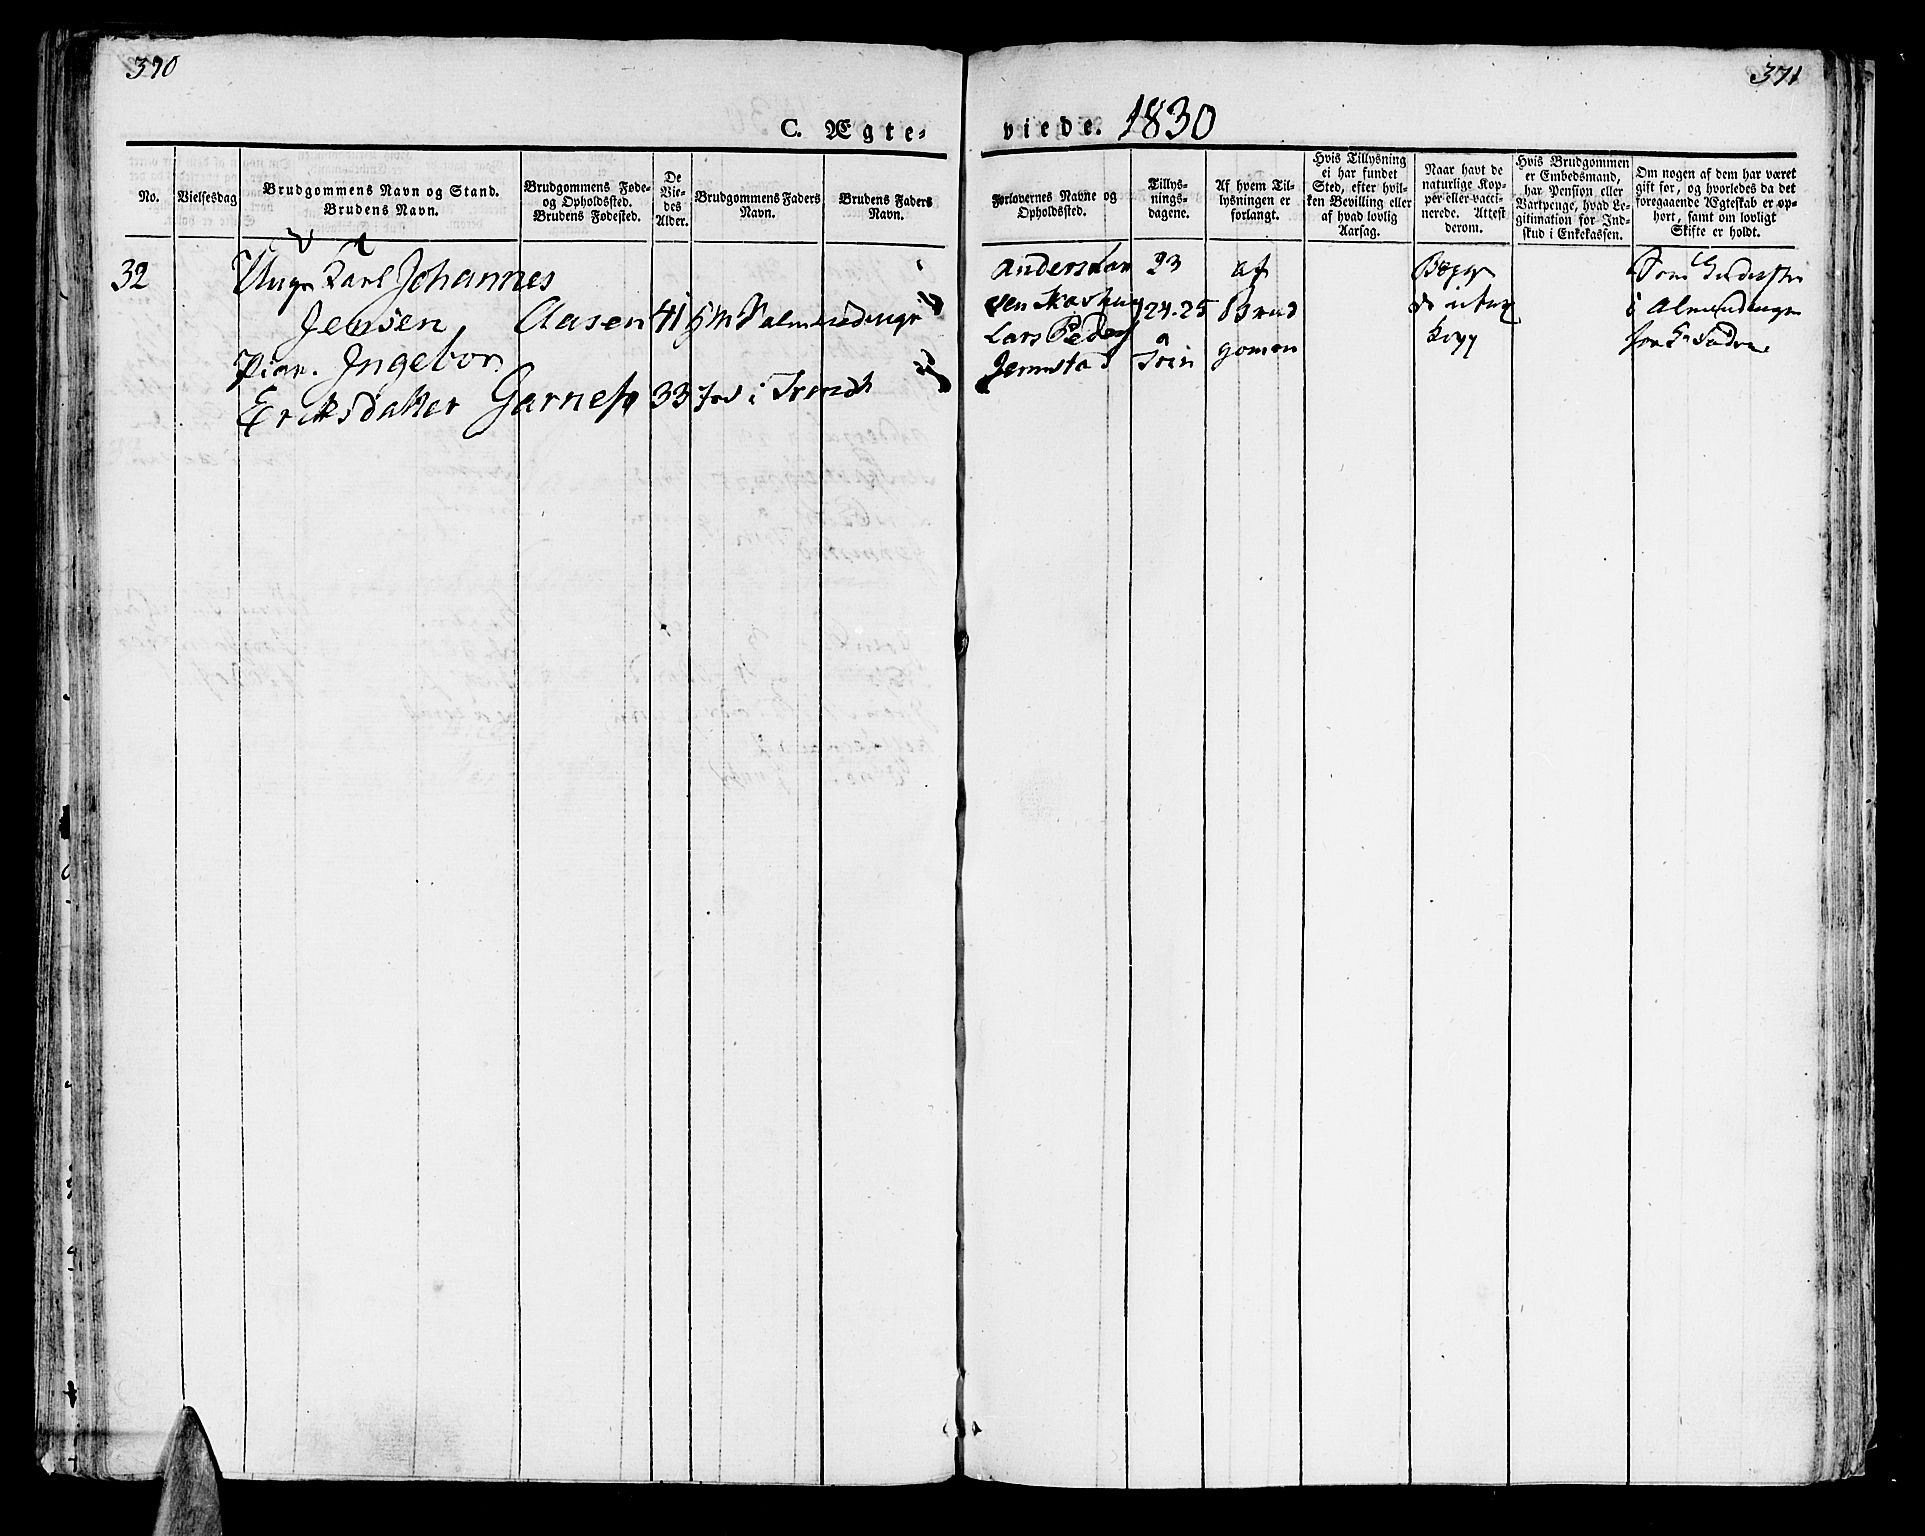 370
371
C. Ægte-
viede. 1830
No.
Vielsesdag
Brudgommens Navn og Stand.
Brudens Navn.
Brudgommens Føde-
og Opholdssted.
Brudens Fødested.
De
Vie-
des
Alder.
Brudgommens Faders
Navn.
Brudens Faders
Navn.
Forlovernes Navne og
Opholdssted.
Tillys-
nings-
dagene.
Af hvem Til-
lysningen er
forlangt.
Hvis Tillysning
ei har fundet
Sted, efter hvil-
ken Bevilling eller
af hvad lovlig
Aarsag.
Naar havt de
naturlige Kop-
per eller vacci-
nerede. Attest
derom.
Hvis Brudgommen
er Embedsmand,
har Pension eller
Vartpenge, hvad Le-
gitimation for Ind-
skud i Enkekassen.
Om nogen af dem har været
gift før, og hvorledes da det
foregaaende Ægteskab er op-
hørt, samt om lovligt
Skifte er holdt.
32
Ungkarl Johannes
Jensen, Aasen 41
Pige. Ingebor
Eriksdatter 33 i Trondh
Anders Lar
sen
Lars Peders
Jermstad
23
24.25
a
Trin
af
Brud
gomen
Begge
Kopp
Som
i Almindingen